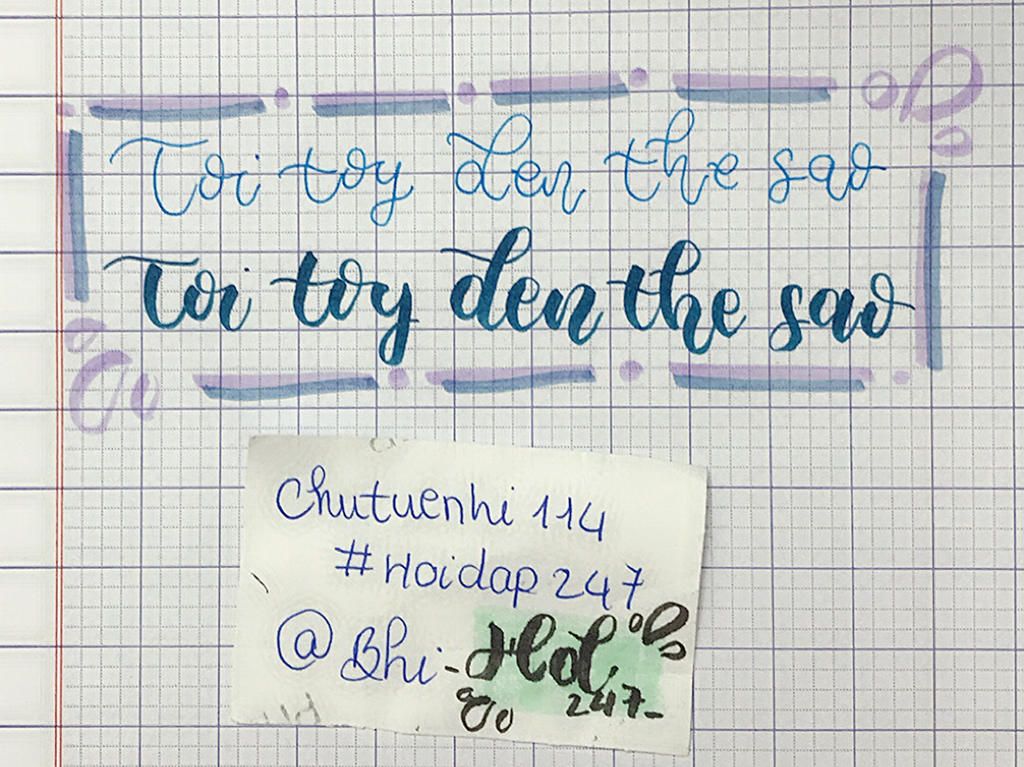 Toi toy den the sao
Toi toy den the sao
Chutuenhi 114
#Hoidap247
@Bhi-
247-